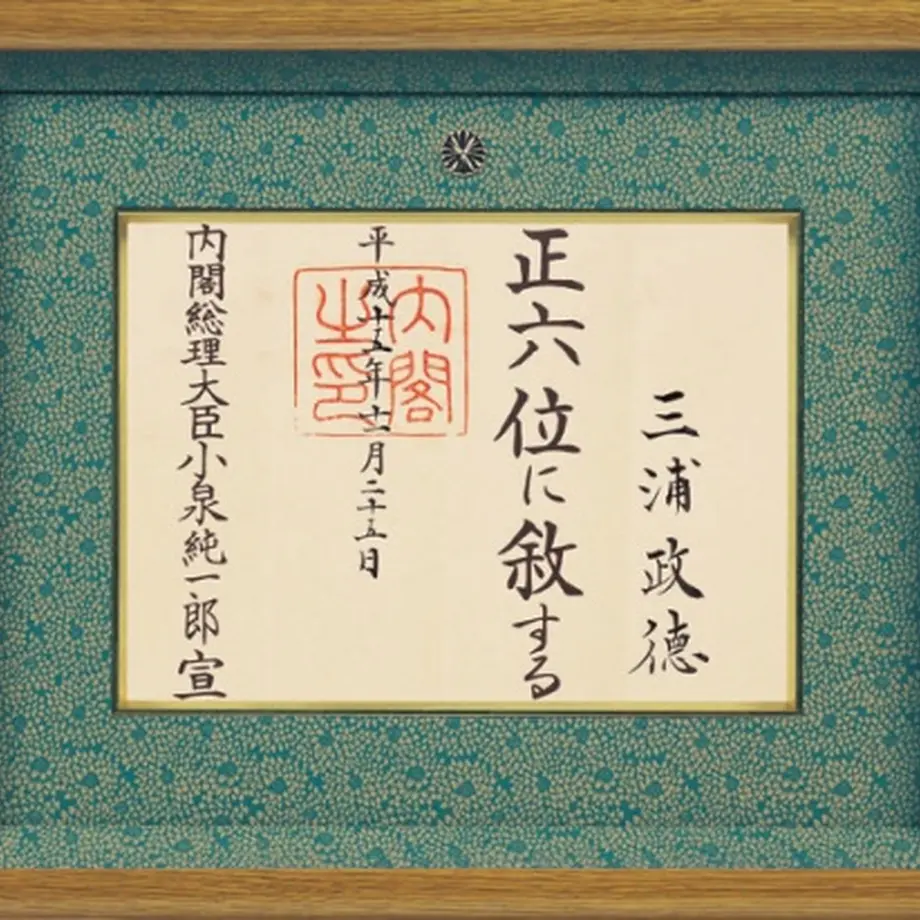 三浦政徳
正六位に叙する
平成十五年十一月二十五日
内閣之印
内閣総理大臣小泉純一郎宣